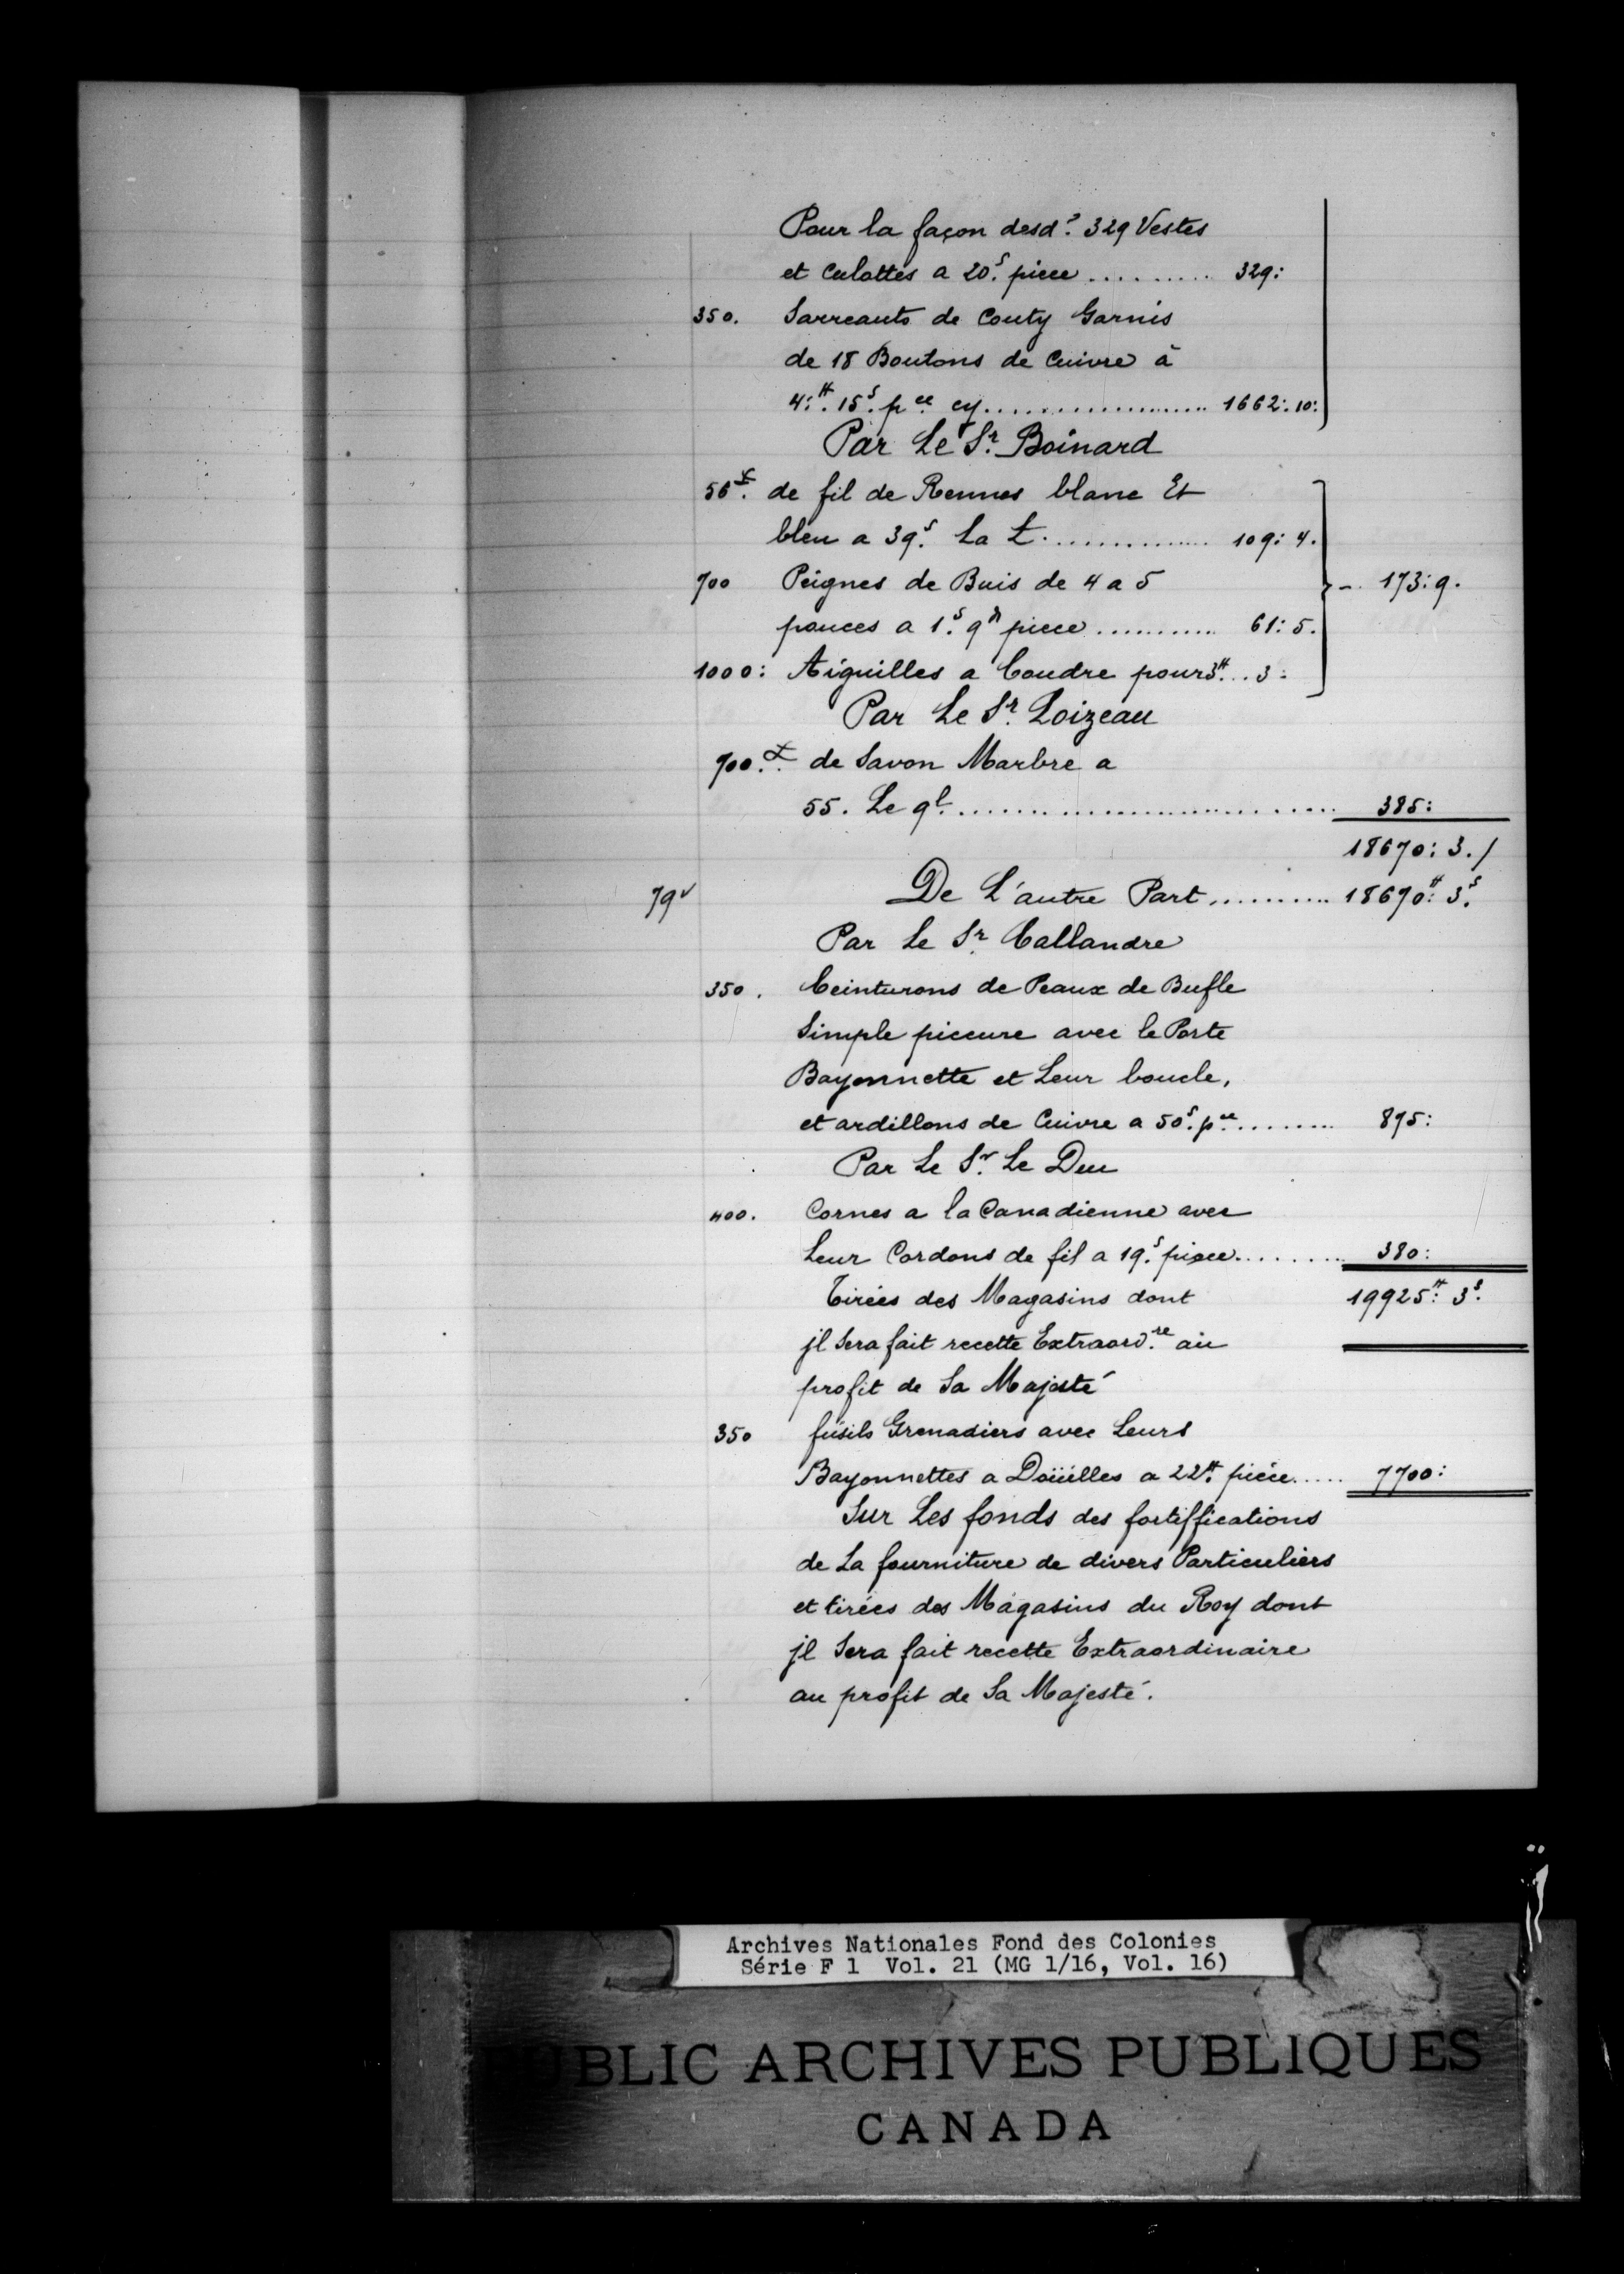 Pour la façon desd.s 329 Vestes
et Culottes a 20.s piece .......... 329:
350. Sarreauts de Couty Garnis
de 18 Boutons de Cuivre à
4:₶. 15.s p.ce cy.................... 1662: 10:
Par Le S.r Boinard
56 ℔. de fil de Rennes blanc Et
bleu a 39.s La ℔............... 109: 4.
700 Peignes de Buis de 4 a 5
pouces a 1.s 9 d piece ........... 61: 5. - 173: 9.
1000: Aiguilles a Coudre pour 3₶... 3:
Par Le S.r Loizeau
700. ℔. de Savon Marbre a
55. Le q.l .............................. 385:
18670: 3. /
79v De L'autre Part .......... 18670:₶ 3.s
Par Le S.r Callandre
350. Ceinturons de Peaux de Bufle
Simple piccure avec le Porte
Bayonnette et Leur boucle,
et ardillons de Cuivre a 50.s p.ce ......... 875:
Par Le S.r Le Duu
400. Cornes a la Canadienne avec
Leur Cordons de fil a 19.s piece......... 380:
Tirées des Magasins dont 19925:₶ 3.s
jl Sera fait recette Extraord.re au
profit de Sa Majesté
350 fusils Grenadiers avec Leurs
Bayonnettes a Doüilles a 22₶. piéce..... 7700:
Sur Les fonds des fortiffications
de La fourniture de divers Particuliers
et tirées des Magasins du Roy dont
jl Sera fait recette Extraordinaire
au profit de Sa Majesté.
Archives Nationales Fond des Colonies
Série F 1 Vol. 21 (MG 1/16, Vol. 16)
PUBLIC ARCHIVES PUBLIQUES
CANADA